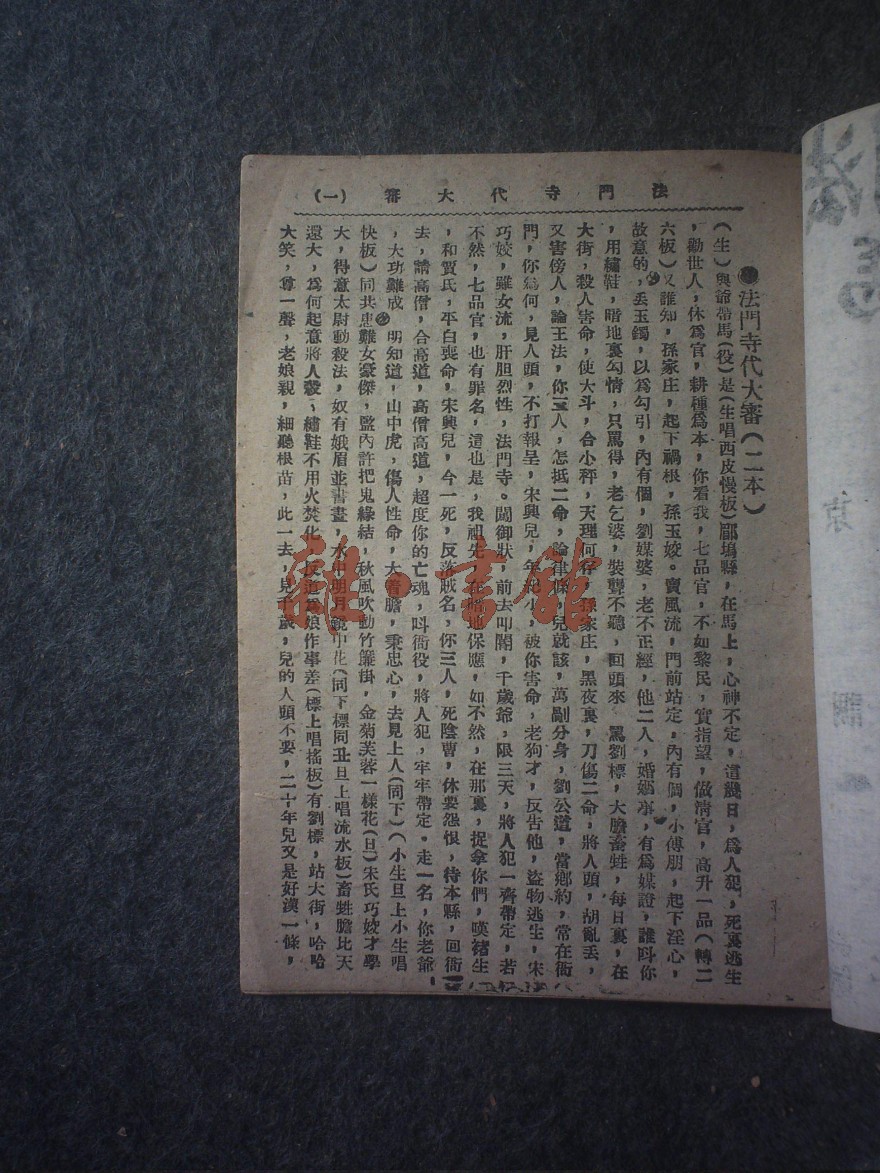 法門寺代大審(一)
●法門寺代大審(二本)
(生)與爺帶馬(役)是(生唱西皮慢板)郿塢縣,在馬上,心神不定,這幾日,爲人犯,死裏逃生
,勸世人,休爲官,耕種爲本,你看我,七品官,不如黎民,實指望,做清官,高升一品(轉二
六板)又誰知,孫家庄,起下禍根,孫玉姣。賣風流,門前站定,內有個,小傅朋,起下淫心,
故意的,丢玉鐲,以爲勾引,內有個,劉媒婆,老不正經,他二人,婚姻事,有爲媒證,誰呌你
,用繡鞋,暗地裏勾情,只罵得,老乞婆,裝聾不聽,回頭來 罵劉標,大膽畜牲,每日裏,在
大街,殺人害命,使大斗,合小秤,天理何存,孫家庄,黑夜裏,刀傷二命,將人頭,胡亂丢,
又害傍人,論王法,你三人,怎抵二命,論律條,兒就該,萬剮分身,劉公道,當鄉約,常在衙
門,你爲何,見人頭,不打報呈,宋興兒,年紀小,被你害命,老狗才,反告他,盜物逃生,宋
巧姣,雖女流,肝胆烈性,法門寺。闖御狀 前去叩閽,千歲爺,限三天,將人犯一齊帶定,若
不然,七品官,也有罪名,這也是,我祖先,在暗地保應,如不然,在那裏,捉拿你們,嘆褚生
,和賈氏,平白喪命,宋興兒,今一死,反落賊名,你三人,死陰曹,休要怨恨,待本縣,回衙
去,請高僧,合高道,高僧高道,超度你的亡魂,呌衙役,將人犯,牢牢帶定。走一名,你老爺
,大功難成 明知道,山中虎,傷人性命,大着膽,秉忠心,去見上人(同下)(小生旦上小生唱
快板)同共患難女豪傑,監內許把鬼緣結,秋風吹動竹簾掛,金菊芙蓉一樣花(旦)宋氏巧姣才學
大,得意太尉動殺法,奴有娥眉並書畫,水中明月鏡中花(同下標同丑旦上唱流水板)畜牲膽比天
還大,爲何起意將人殺,繡鞋不用火焚化,反道爲娘作事差(標上唱搖板)有劉標,站大街,哈哈
大笑,尊一聲,老娘親,細聽根苗,此一去,見千歲,兒的人頭不要,二十年兒又是好漢一條,
雜·書館
京
調